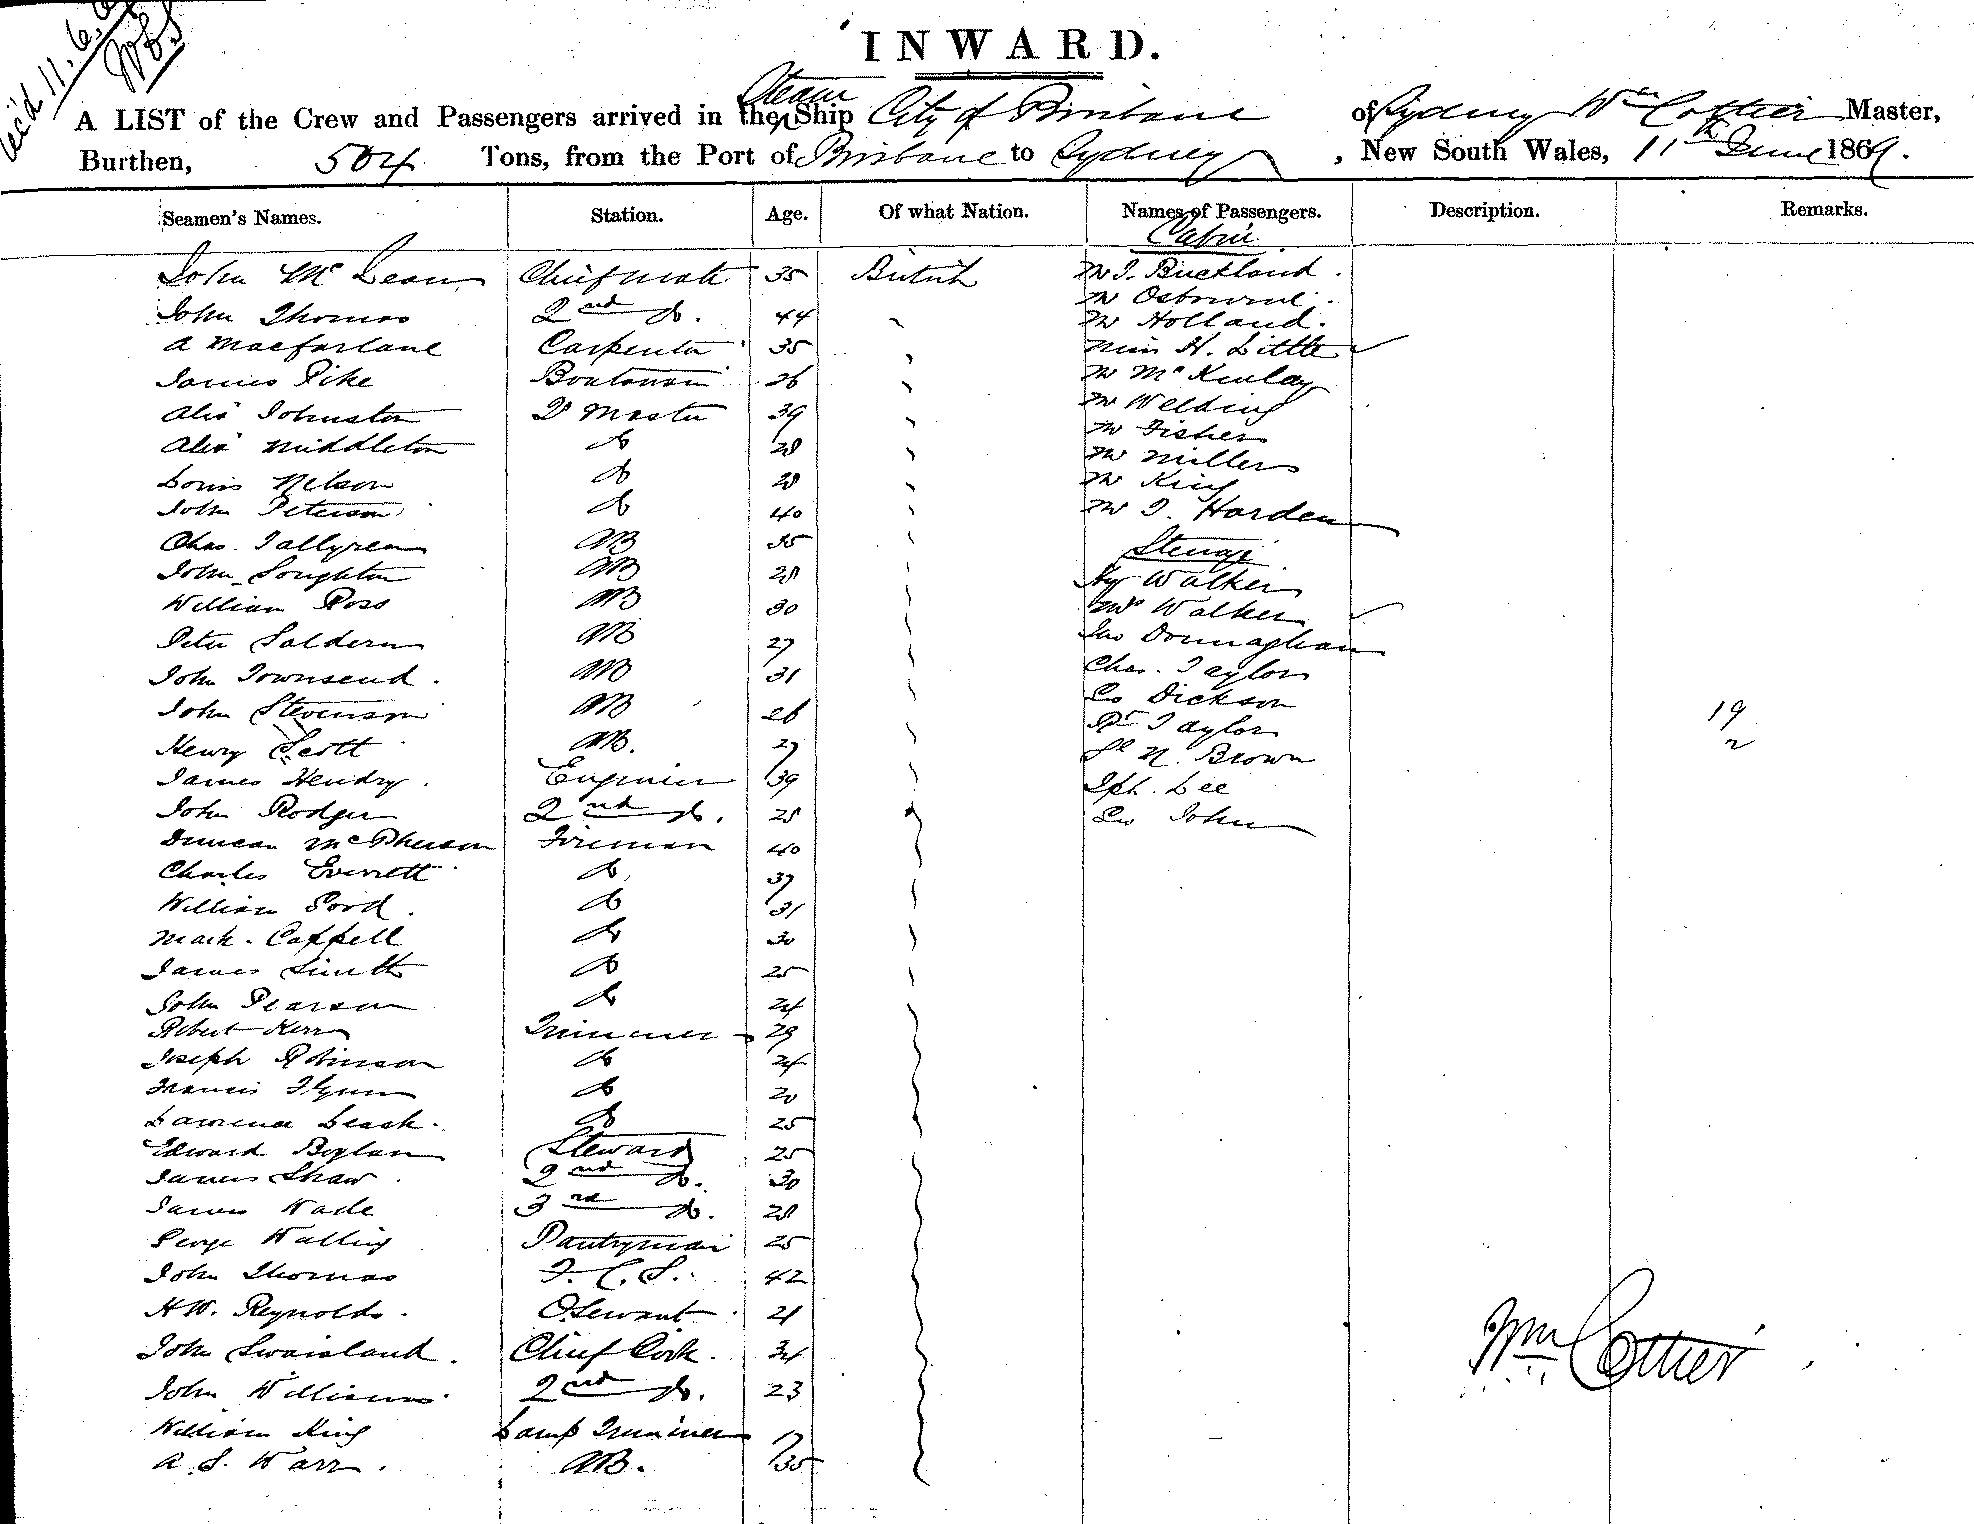 Rec'd 11.6.69
INWARD.
A LIST of the Crew and Passengers arrived in the Steam Ship City of Brisbane of Sydney Wm Cottier Master,
Burthen, 504 Tons, from the Port of Brisbane to Sydney, New South Wales, 11th June 1869.
Seamen's Names. Station. Age. Of what Nation. Names of Passengers. Description. Remarks.
Cabin
John McLean Chief mate 35 British Mr J. Buckland.
John Thomas 2nd Do. 44 Mr Osbourne.
Mr Holland.
A Macfarlane Carpenter 35 Miss H. Little
James Pike Boatswain 26 Mr McKinlay
Alexr Johnston Qr Master 39 Mr Welding
Mr Fisher
Alexr Middleton Do 28 Mr Miller
Louis Nelson Do 28 Mr King
John Peterson Do 40 Mr J. Harden
Chas. Tallyrea AB 35 Steerage
John Soughton AB 28 Hy Walker
William Ross AB 30 Mrs Walker
Peter Saldern AB 27 Jas Donnaghan
John Townsend. AB 31 Chas. Taylor
John Stevenson AB 26 Geo Dickson
19
Rt Taylor
Henry Scott AB. 27 Brown
2
James Hendry. Engineer 39 Jph. Lee
John Rodger 2nd Do. 28 Geo John
Duncan McPherson Fireman 40
Charles Everett Do 37
William Good. Do 31
Mark. Cappell Do 30
James Smith Do 25
John Pearson Do 24
Robert Kerr Trimmer 29
Joseph Robinson Do 24
Francis Flynn Do 20
Lawrence Leach. Do 25
Edward Boylan Steward 25
James Shaw. 2nd Do. 30
James Wade 3rd Do. 28
George Walling Pantryman 25
John Thomas F. C. S. 42
H W. Reynolds. O. Servant 21
John Swaisland. Chief Cook. 34
Wm Cottier
John Williams. 2nd Do. 23
William King Lamp Trimmer 17
A. S. Warr. AB. 35